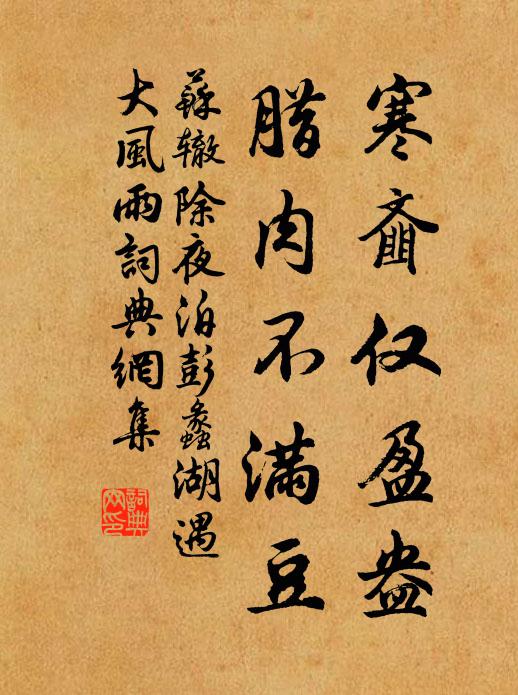 寒齑仅盈盎
腊肉不满豆
蘇辙除夜泊彭蠡湖遇
大風雨詞典網集
詞典网印